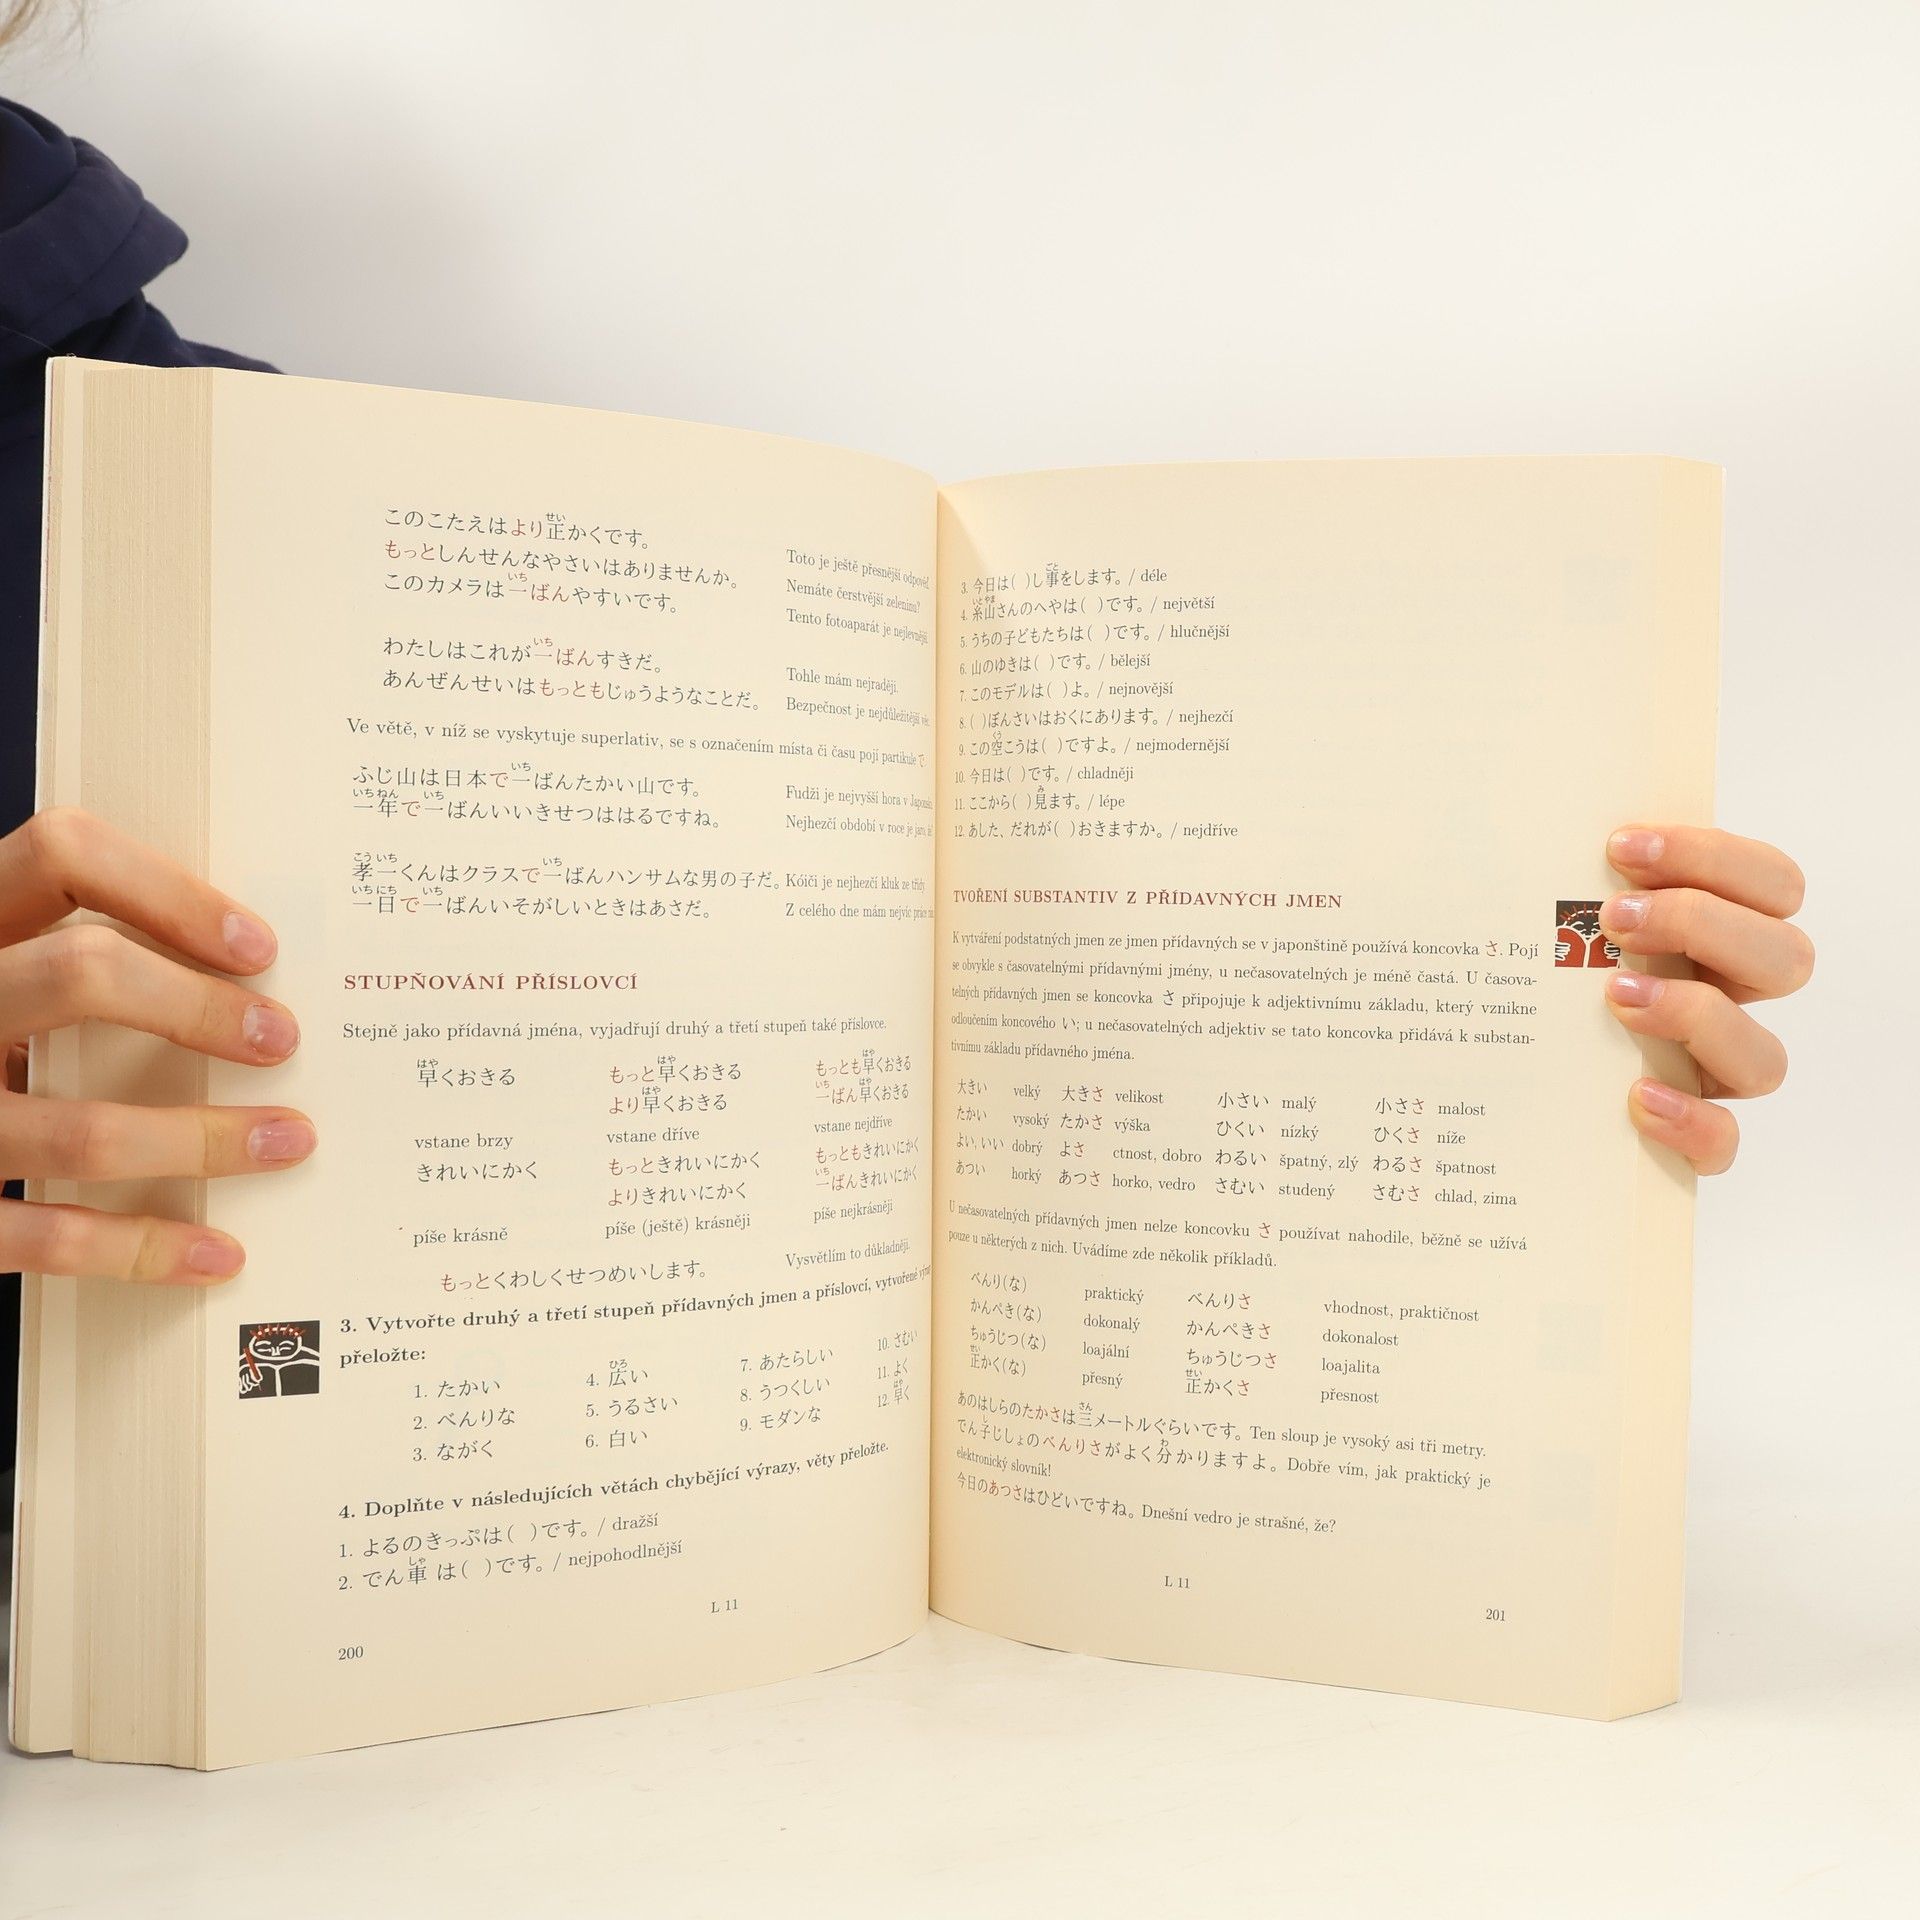 このこたえはより正かくです。 Toto je ještě přesnější odpověď.
もっとしんせんなやさいはありませんか。 Nemáte čerstvější zeleninu?
このカメラは一ばんやすいです。 Tento fotoaparát je nejlevnější.
わたしはこれが一ばんすきだ。 Tohle mám nejraději.
あんぜんせいはもっともじゅうようなことだ。 Bezpečnost je nejdůležitější
Ve větě, v níž se vyskytuje superlativ, se s označením místa či času pojí partikule で.
ふじ山は日本で一ばんたかい山です。 Fudži je nejvyšší hora v
一年で一ばんいいきせつははるですね。 Nejhezčí období v roce je jaro,
孝一くんはクラスで一ばんハンサムな男の子だ。 Kóiči je nejhezčí kluk ze třídy
一日で一ばんいそがしいときはあさだ。 Z celého dne mám nejvíc práce
STUPŇOVÁNÍ PŘÍSLOVCÍ
Stejně jako přídavná jména, vyjadřují druhý a třetí stupeň také příslovce.
早くおきる もっと早くおきる もっとも早くおきる
より早くおきる 一ばん早くおきる
vstane brzy vstane dříve vstane nejdříve
きれいにかく もっときれいにかく もっともきれいにかく
よりきれいにかく 一ばんきれいにかく
píše krásně píše (ještě) krásněji píše nejkrásněji
もっとくわしくせつめいします。 Vysvětlím to důkladněji.
3. Vytvořte druhý a třetí stupeň přídavných jmen a příslovcí, vytvořené
přeložte:
1. たかい 4. 広い 7. あたらしい 10. さむい
2. べんりな 5. うるさい 8. うつくしい 11. よく
3. ながく 6. 白い 9. モダンな 12. 早く
4. Doplňte v následujících větách chybějící výrazy, věty přeložte.
1. よるのきっぷは( )です。 / dražší
2. でん車 は( )です。 / nejpohodlnější
L 11
200
3. 今日は( )し事をします。 / déle
4. 糸山さんのへやは( )です。 / největší
5. うちの子どもたちは( )です。 / hlučnější
6. 山のゆきは( )です。 / bělejší
7. このモデルは( )よ。 / nejnovější
8. ( )ぼんさいはおくにあります。 / nejhezčí
9. この空こうは( )ですよ。 / nejmodernější
10. 今日は( )です。 / chladněji
11. ここから( )見ます。 / lépe
12. あした、だれが( )おきますか。 / nejdříve
TVOŘENÍ SUBSTANTIV Z PŘÍDAVNÝCH JMEN
K vytváření podstatných jmen ze jmen přídavných se v japonštině používá koncovka さ. Pojí
se obvykle s časovatelnými přídavnými jmény, u nečasovatelných je méně častá. U časova-
telných přídavných jmen se koncovka さ připojuje k adjektivnímu základu, který vznikne
odloučením koncového い; u nečasovatelných adjektiv se tato koncovka přidává k substan-
tivnímu základu přídavného jména.
大きい velký 大きさ velikost 小さい malý 小ささ malost
たかい vysoký たかさ výška ひくい nízký ひくさ níže
よい, いい dobrý よさ ctnost, dobro わるい špatný, zlý わるさ špatnost
あつい horký あつさ horko, vedro さむい studený さむさ chlad, zima
U nečasovatelných přídavných jmen nelze koncovku さ používat nahodile, běžně se užívá
pouze u některých z nich. Uvádíme zde několik příkladů.
べんり(な) praktický べんりさ vhodnost, praktičnost
かんぺき(な) dokonalý かんぺきさ dokonalost
ちゅうじつ(な) loajální ちゅうじつさ loajalita
正かく(な) přesný 正かくさ přesnost
あのはしらのたかさは三メートルぐらいです。 Ten sloup je vysoký asi tři metry.
でん子じしょのべんりさがよく分かりますよ。 Dobře vím, jak praktický je
elektronický slovník!
今日のあつさはひどいですね。 Dnešní vedro je strašné, že?
L 11
201